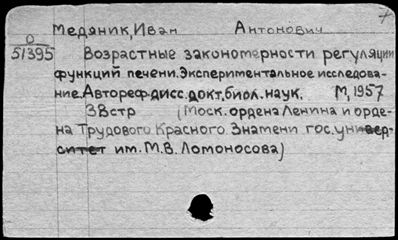 Медяник, Иван Антонович
О
51395
Возрастные закономерности регуляции
функций печени. Экспериментальное исследова-
ние. Автореф. дисс. докт. биол. наук. М, 1957
38стр (Моск. ордена Ленина и орде-
на Трудового Красного Знамени гос. универ-
ситет им. М.В. Ломоносова)